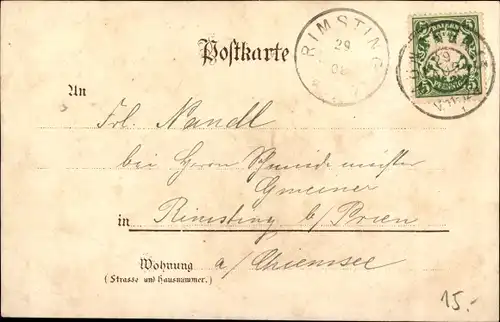 Postkarte
RIMSTING
29
BAYERN
5 5
PFENNIG
An
Frl. Nandl
bei Herrn Schmiedemeister
Gmeiner
in Rimsting b/Prien
Wohnung a/Chiemsee
(Strasse und Hausnummer.)
15.-